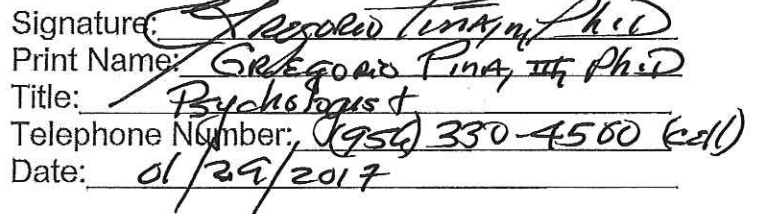 Signature: Gregorio Pina, III, Ph.D
Print Name: Gregorio Pina, III, Ph.D
Title: Psychologist
Telephone Number: (956) 330-4500 (cell)
Date: 01/29/2017